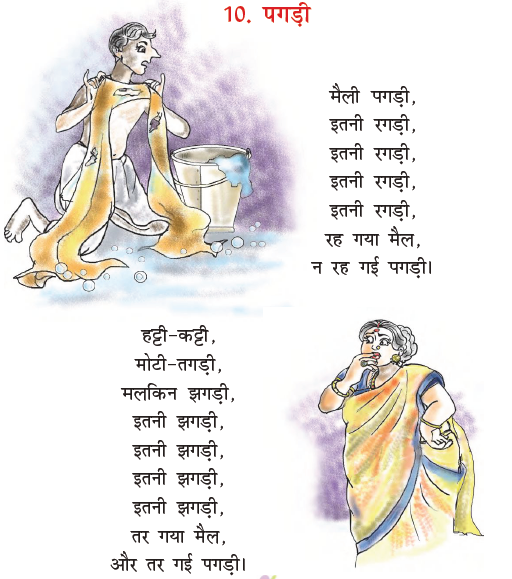 10. पगड़ी
मैली पगड़ी,
इतनी रगड़ी,
इतनी रगड़ी,
इतनी रगड़ी,
इतनी रगड़ी,
रह गया मैल,
न रह गई पगड़ी।
हट्टी-कट्टी,
मोटी-तगड़ी,
मलकिन झगड़ी,
इतनी झगड़ी,
इतनी झगड़ी,
इतनी झगड़ी,
इतनी झगड़ी,
तर गया मैल,
और तर गई पगड़ी।